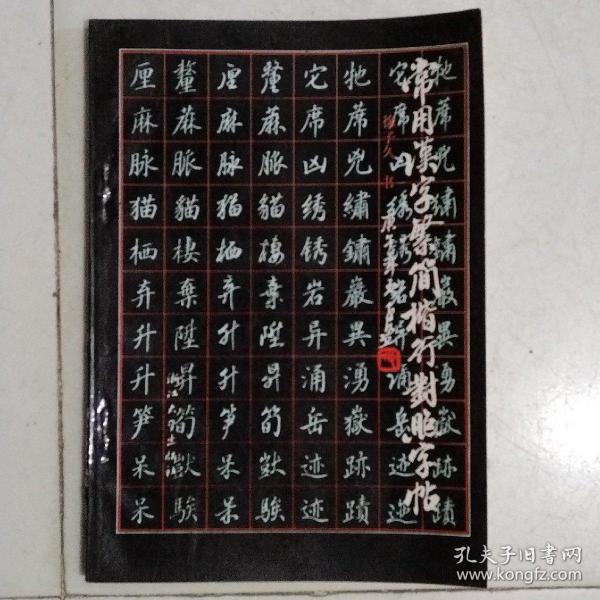 常用漢字繁简楷行對照字帖
厘釐厘釐它牠它牠
麻蔴麻蔴席蓆席蓆
脉脈脉脈凶兇凶兇
猫貓猫貓绣繡绣繡
栖棲栖棲锈鏽锈鏽
弃棄弃棄岩巖岩巖
升陞升陞异異异異
升昇升昇涌湧涌湧
笋筍笋筍岳嶽岳嶽
呆獃呆獃迹跡迹跡
呆騃呆騃迹蹟迹蹟
孔夫子旧书网
www.kongfz.com